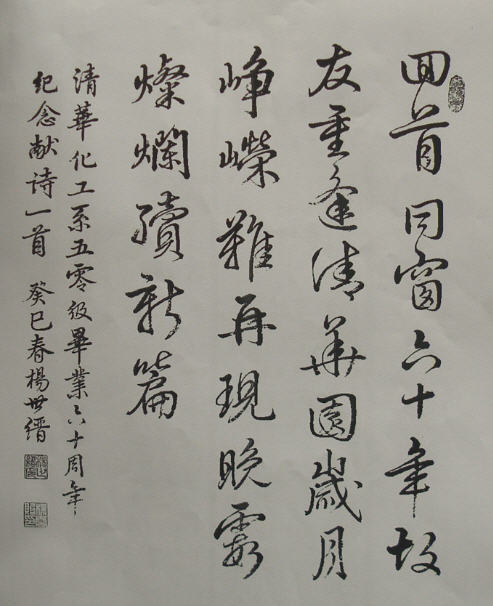 回首同窗六十年故
友重逢清华園歲月
峥嶸難再現晚霞
燦爛續新篇
清華化工系五零级畢業六十周年
纪念献诗一首 癸巳春楊世缙